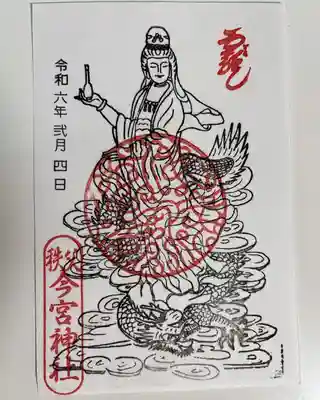 令和六年 弐月 四日
秩父今宮神社